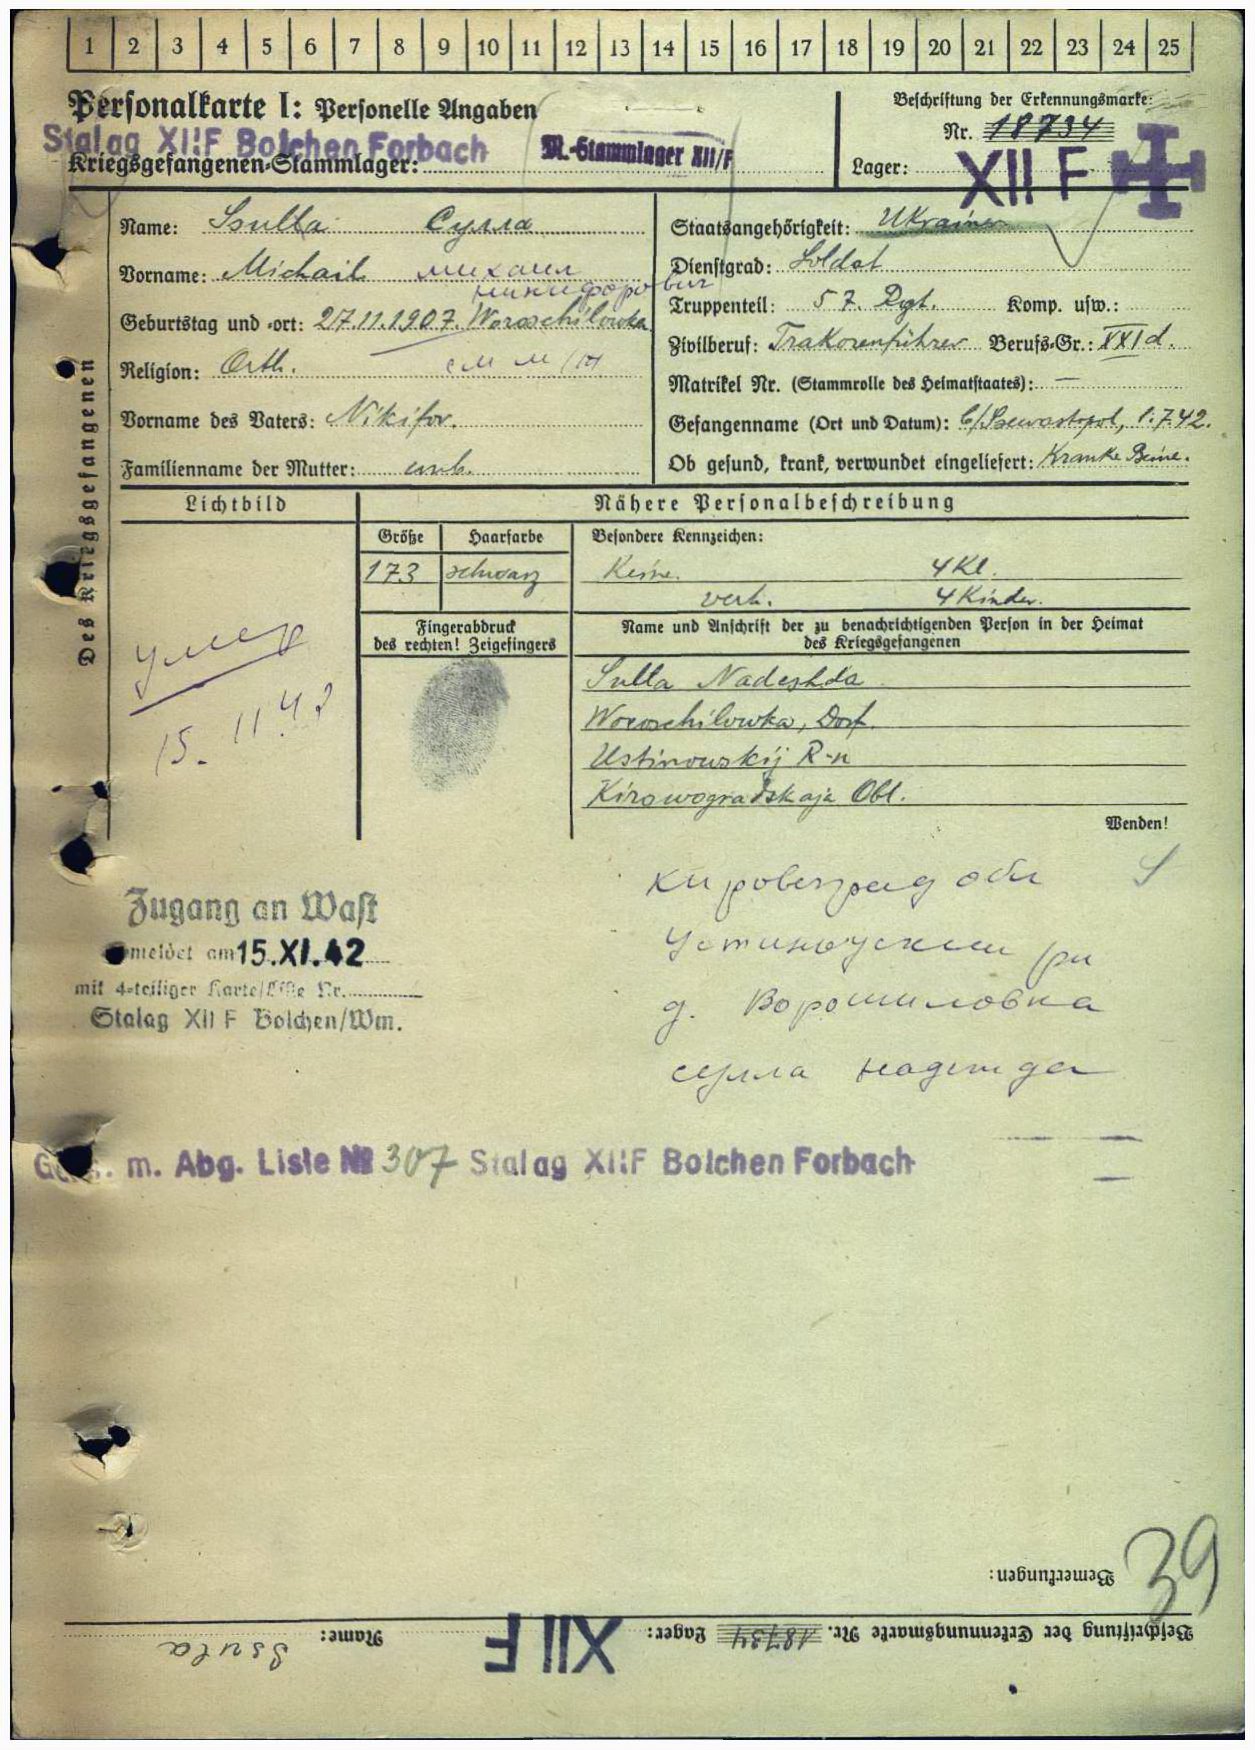 1 2 3 4 5 6 7 8 9 10 11 12 13 14 15 16 17 18 19 20 21 22 23 24 25
Personalkarte I: Personelle Angaben
Stalag XIIF Bolchen Forbach
Kriegsgefangenen-Stammlager: M.-Stammlager XII/F
Beschriftung der Erkennungsmarke:
Nr. 18734
Lager: XII F
Des Kriegsgefangenen
Name: Ssulla Сулла
Vorname: Michail михаил
никифорович
Geburtstag und -ort: 27.11.1907. Woroschilowka
Religion: Orth.
Vorname des Vaters: Nikifor.
Familienname der Mutter: unb.
Staatsangehörigkeit: Ukrainer
Dienstgrad: Soldat
Truppenteil: 57. Rgt. Komp. usw.:
Zivilberuf: Berufs-Gr.: XXI d.
Matrikel Nr. (Stammrolle des Heimatstaates): —
Gefangennahme (Ort und Datum): b/Ssewastopol, 1.7.42.
Ob gesund, krank, verwundet eingeliefert: Kranke Beine.
Lichtbild
Nähere Personalbeschreibung
Größe Haarfarbe Besondere Kennzeichen:
173 schwarz Keine. 4 Kl.
verh. 4 Kinder.
Fingerabdruck
des rechten! Zeigefingers
Name und Anschrift der zu benachrichtigenden Person in der Heimat
des Kriegsgefangenen
Sulla Nadeshda
Woroschilowka, Dorf.
Ustinowskij R-n
Kirowogradskaja Obl.
Wenden!
умер
15. 11 43
Zugang an Wast
gemeldet am 15.XI.42
mit 4-teiliger Karte/Liste Nr.
Stalag XII F Bolchen/Wm.
д. Ворошиловка
сулла
Gem. m. Abg. Liste № 307 Stalag XIIF Bolchen Forbach
39
Bemerkungen:
Beschriftung der Erkennungsmarke Nr. 18734 Lager: XII F Name: Ssulla